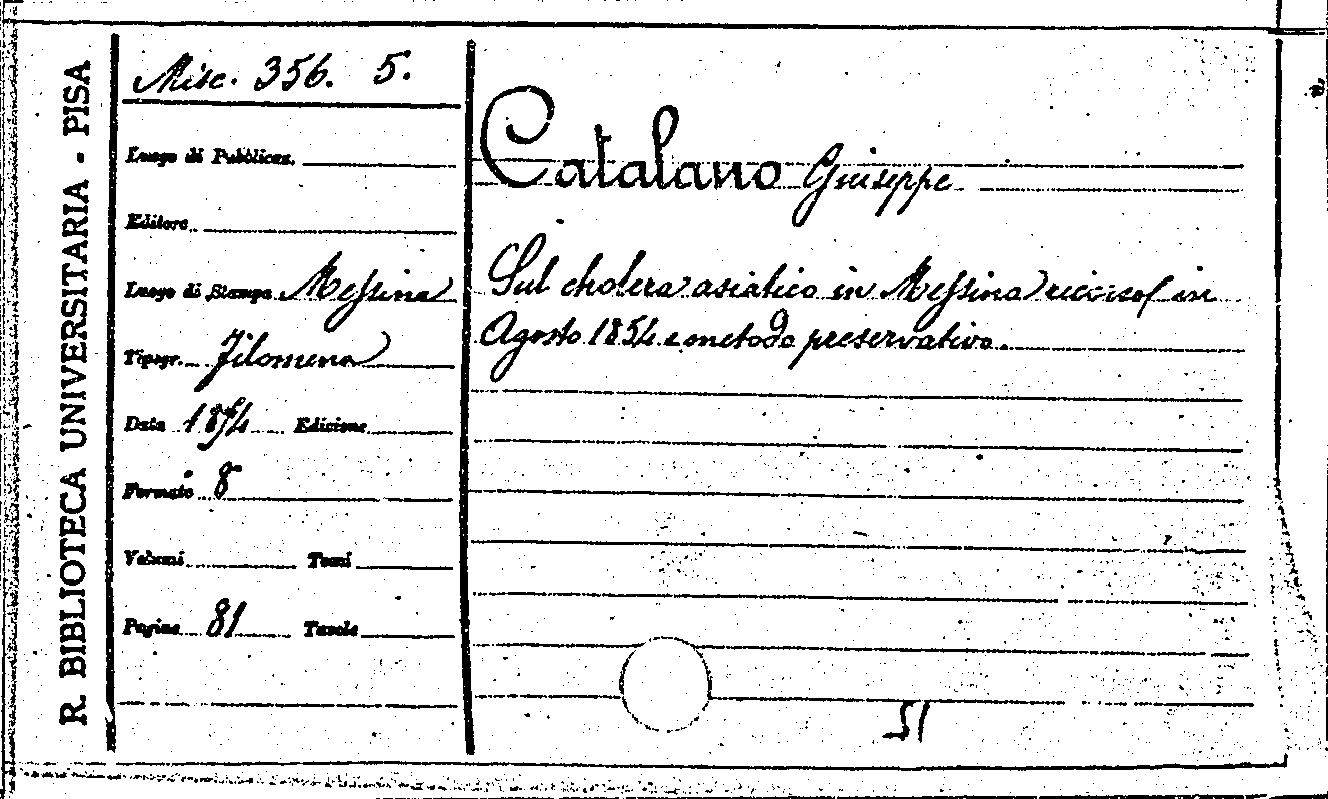 R. BIBLIOTECA UNIVERSITARIA - PISA
Misc. 356. 5.
Luogo di Pubblicaz.
Editore
Luogo di Stampa Messina
Tipogr. Filomena
Data 1854 Edizione
Formato 8
Volumi Tomi
Pagine 81 Tavole
Catalano Giuseppe
Sul cholera asiatico in Messina in
Agosto 1854 e metodo preservativo.
51